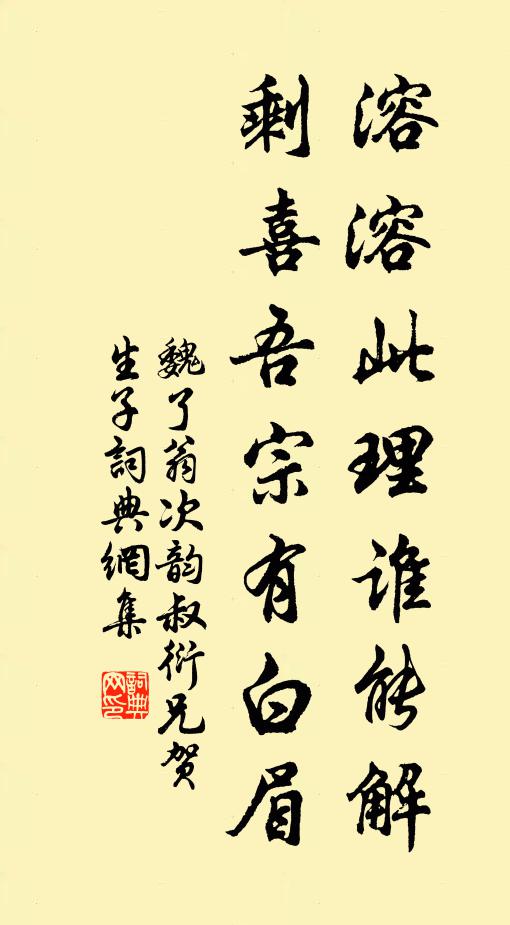 溶溶此理谁能解
剩喜吾宗有白眉
魏了翁次韵叔衍兄贺
生子詞典網集
詞典网印